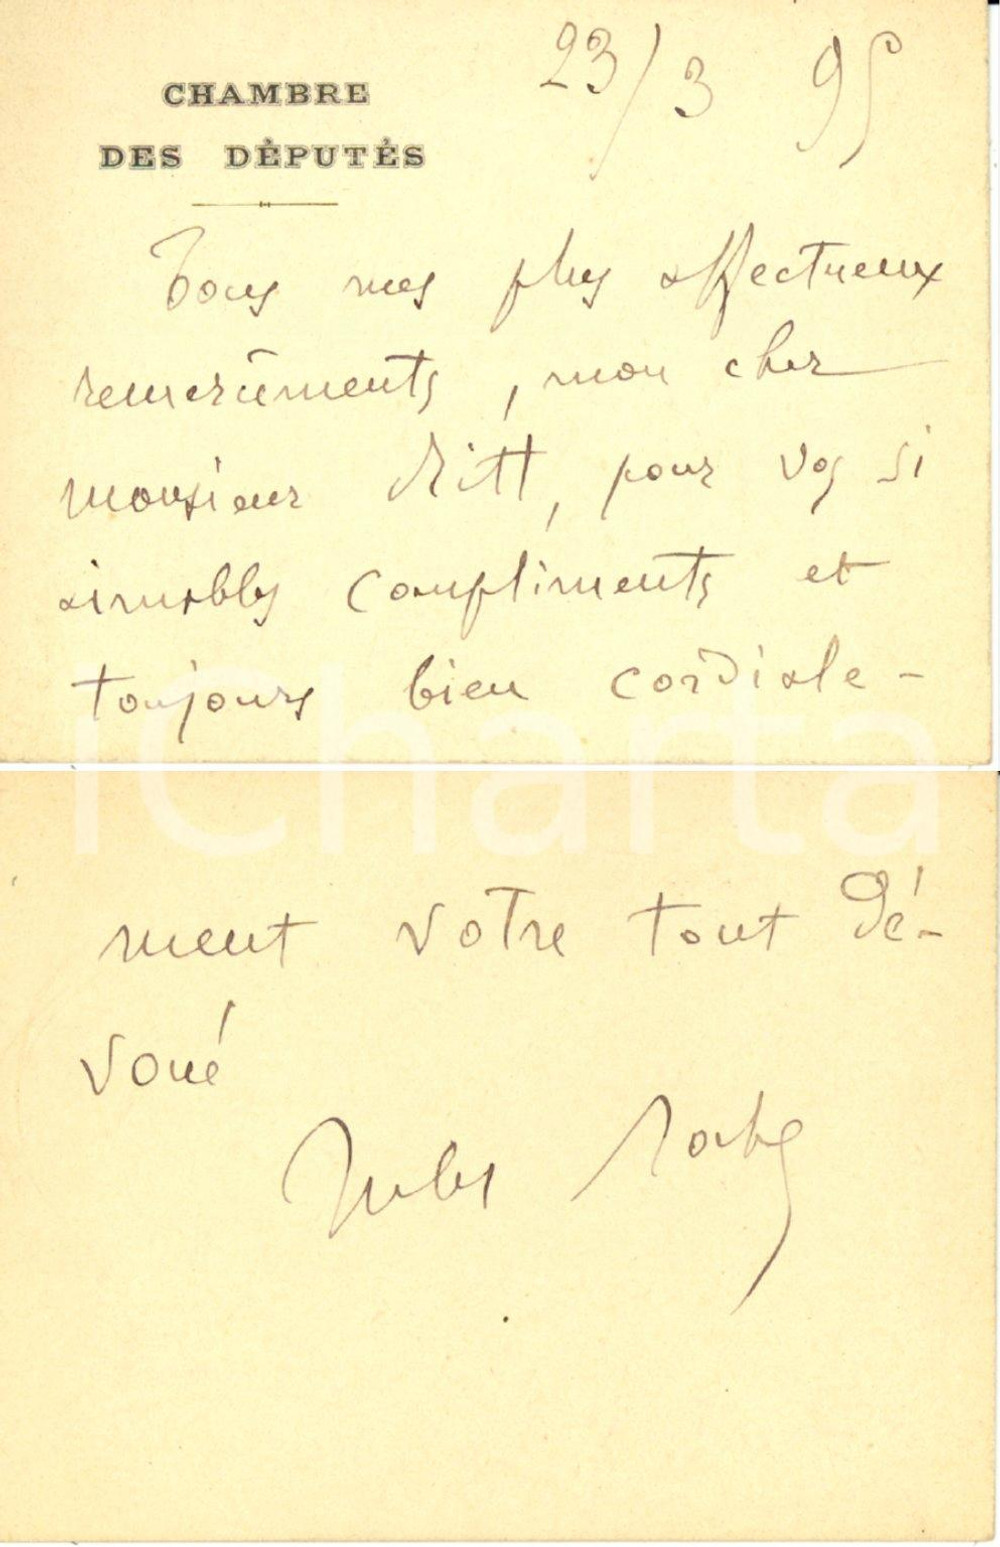 CHAMBRE
DES DÉPUTÉS
23/3 95
Tous mes plus affectueux
remerciements, mon cher
monsieur Ritt, pour vos si
aimables compliments et
toujours bien cordiale-
iCharta
ment votre tout dé-
voué
Jules Roche